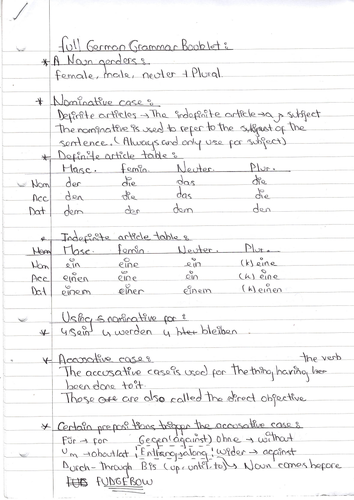 Full German Grammar Booklet:
* A Noun genders:
Female, male, neuter + Plural.
* Nominative case:
Definite articles → The indefinite article → a, subject
The nominative is used to refer to the subject of the
sentence. (Always and only use for subject)
* Definite article table:
Masc. Femin Neuter. Plur.
Nom der die das die
Acc den die das die
Dat dem der dem den
* Indefinite article table:
Nom Masc Femin Neuter. Plur.
Nom ein eine ein (k)eine
Acc einen eine ein (k)eine
Dat einem einer einem (k)einen
Using nominative for:
* ↳ Sein ↳ werden ↳ bleiben
* Accusative case: the verb
The accusative case is used for the thing having
been done to it.
These are also called the direct objective
* Certain prepositions trigger the accusative case:
Für → for Gegen (against) ohne → without
Um → about/at Entlang (along) Wider → against
Durch - Through Bis (up, until, to) → Noun comes before
FUDGEBOW